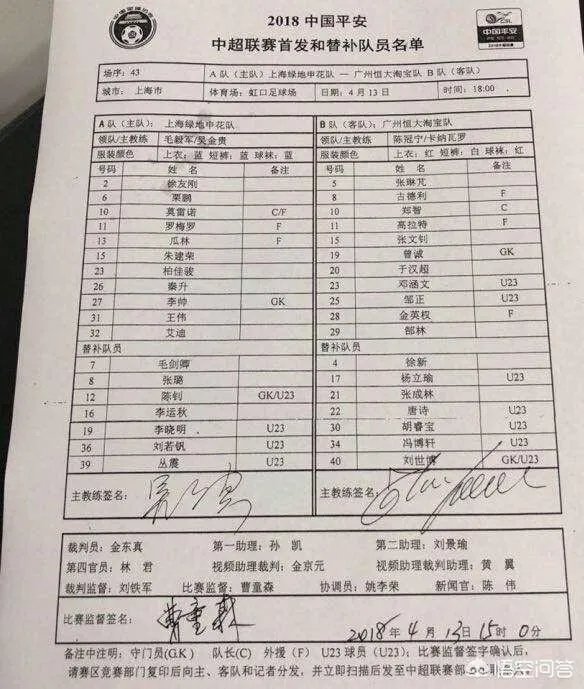 2018 中国平安
中超联赛首发和替补队员名单
中国平安
CSL
场序：43 A 队（主队）上海绿地申花队 — 广州恒大淘宝队 B 队（客队）
城市：上海市 体育场：虹口足球场 日期：4 月 13 日 时间：18:00
A 队（主队）：上海绿地申花队 B 队（客队）：广州恒大淘宝队
领队/主教练 毛毅军/吴金贵 领队/主教练 陈冠宁/卡纳瓦罗
服装颜色 上衣：蓝 短裤：蓝 球袜：蓝 服装颜色 上衣：红 短裤：白 球袜：红
号码 姓名 备注 号码 姓名 备注
2 徐友刚 5 张琳芃
6 栗鹏 8 古德利 F
10 莫雷诺 C/F 10 郑智 C
11 罗梅罗 F 11 高拉特 F
13 瓜林 F 15 张文钊
15 朱建荣 19 曾诚 GK
23 柏佳骏 20 于汉超
26 秦升 23 邓涵文 U23
27 李帅 GK 25 邹正 U23
31 王伟 28 金英权 F
32 艾迪 29 郜林
替补队员 替补队员
7 毛剑卿 4 徐新
8 张璐 17 杨立瑜 U23
12 陈钊 GK/U23 21 张成林
16 李运秋 22 唐诗 U23
19 李晓明 U23 30 胡睿宝 U23
36 刘若钒 U23 34 冯博轩 U23
39 丛震 U23 40 刘世博 GK/U23
主教练签名： 主教练签名：
裁判员：金东真 第一助理：孙 凯 第二助理：刘景瑜
第四官员：林 君 视频助理裁判：金京元 视频助理裁判助理：黄 翼
裁判监督：刘铁军 比赛监督：曹童森 协调员：姚李荣 新闻官：陈 伟
比赛监督签名： 2018年 4 月 13日 15时 0 分
备注中注明：守门员(GK) 队长(C) 外援（F） U23 球员（U23）；比赛监督签字确认后，
请赛区竞赛部门复印后向主、客队和记者分发，并立即扫描后发至中超联赛部
悟空问答